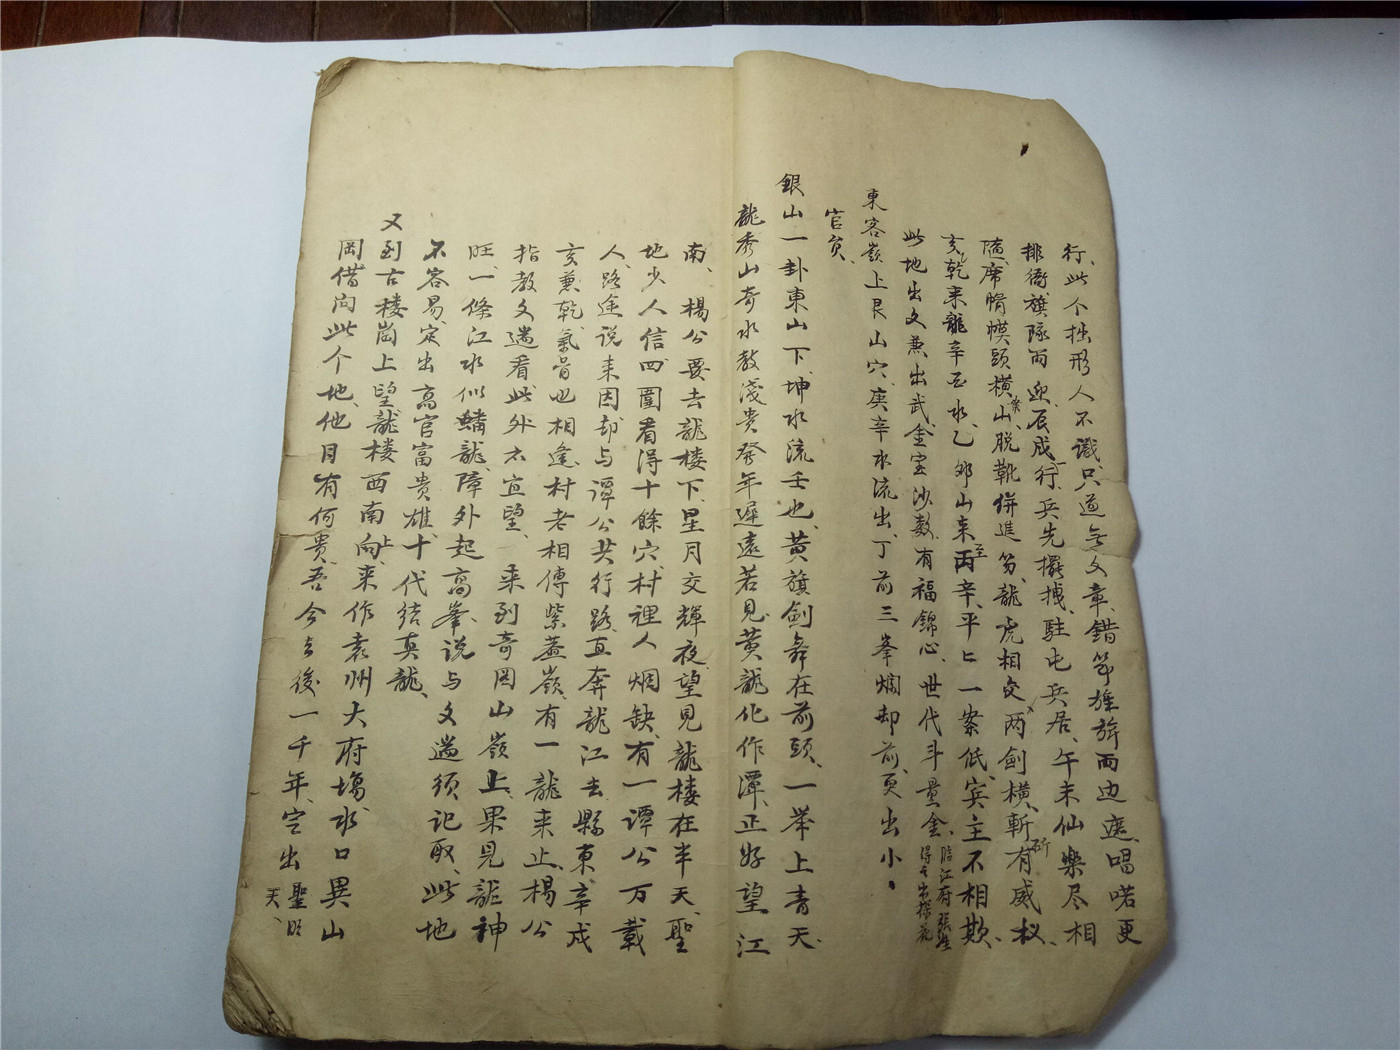 行、此个拙形人不識、只道無文章、錯節旌旂兩边遮、唱喏更
排衙旗隊两迎、辰戍行兵先擺拽、駐屯兵居、午未仙樂尽相
隨、席帽幞頭橫案山、脫靴併進笏、龍虎相交两劍横、斬斫有威权、
亥乾来龍辛至水、乙夘山来丙至辛、平匕一案低、宾主不相欺、
此地出文兼出武、金宝沙数有福錦心、世代斗量金、臨江府張姓得之出探花
東客嶺上艮山穴、庚辛水流出丁前三峯烟却前、更出小
官員、
銀山一卦東山下、坤水流壬也、黄旗劍舞在前頭、一举上青天、
龍秀山奇水教淺、貴發年遲遠、若見黄龍化作潭、正好望江
南、楊公要去龍楼下、星月交輝夜、望見龍楼在半天、聖
地少人信、四圍看得十餘穴、村裡人烟缺、有一譚公万載
人、路途说来因、却与譚公共行路、直奔龍江去、縣東辛戍
亥兼乾、氣骨也相逢、村老相傳紫蓋嶺、有一龍来止、楊公
指教文遄看、此外不宜望、来到奇罔山嶺上、果見龍神
旺、一條江水似鱗龍、障外起高峯、说与文遄须记取、此地
不容易、定出高官富貴雄、十代结真龍、
又到古楼崗上望、龍楼西南上向、来作袁州大府塲、水口異山
岡、借问此个地、他日有何貴、吾今去後一千年、定出聖明天、